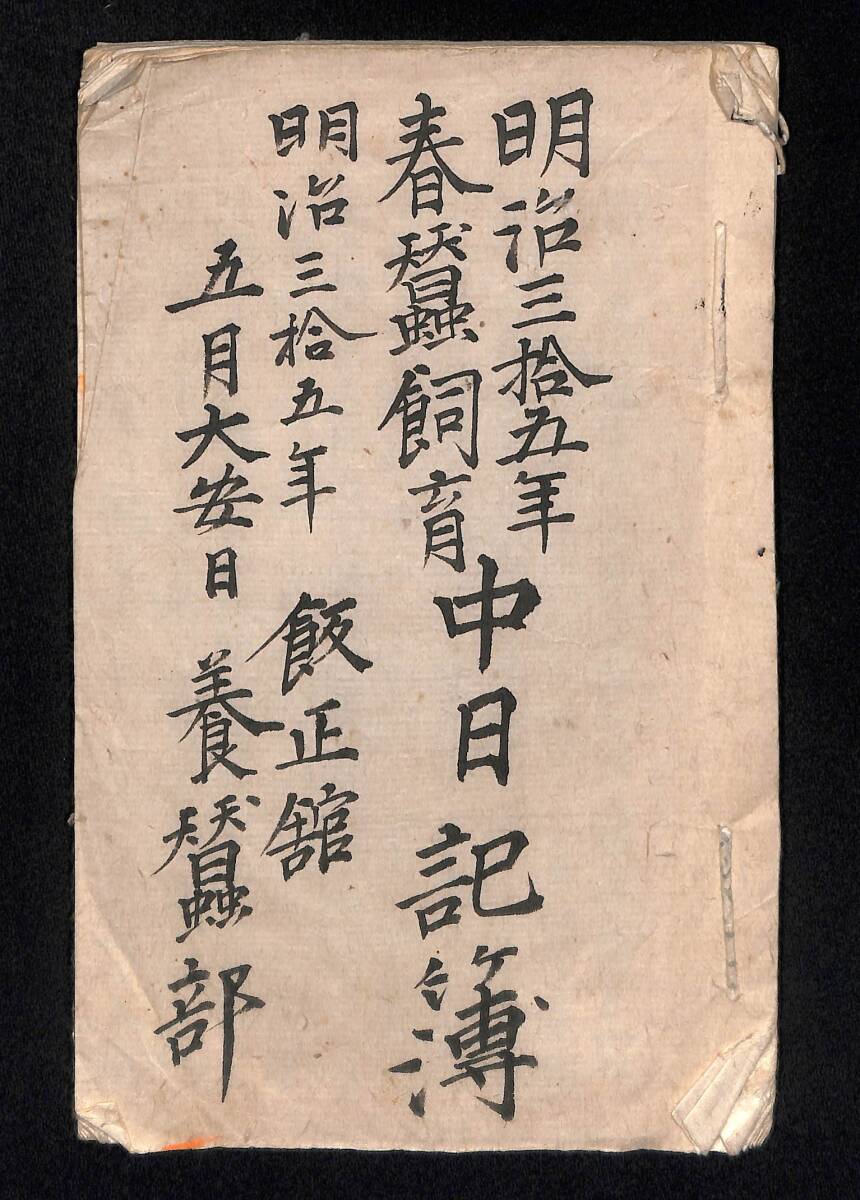 明治三拾五年
春蠶飼育中日記簿
明治三拾五年 飯正舘
五月大安日 養蠶部